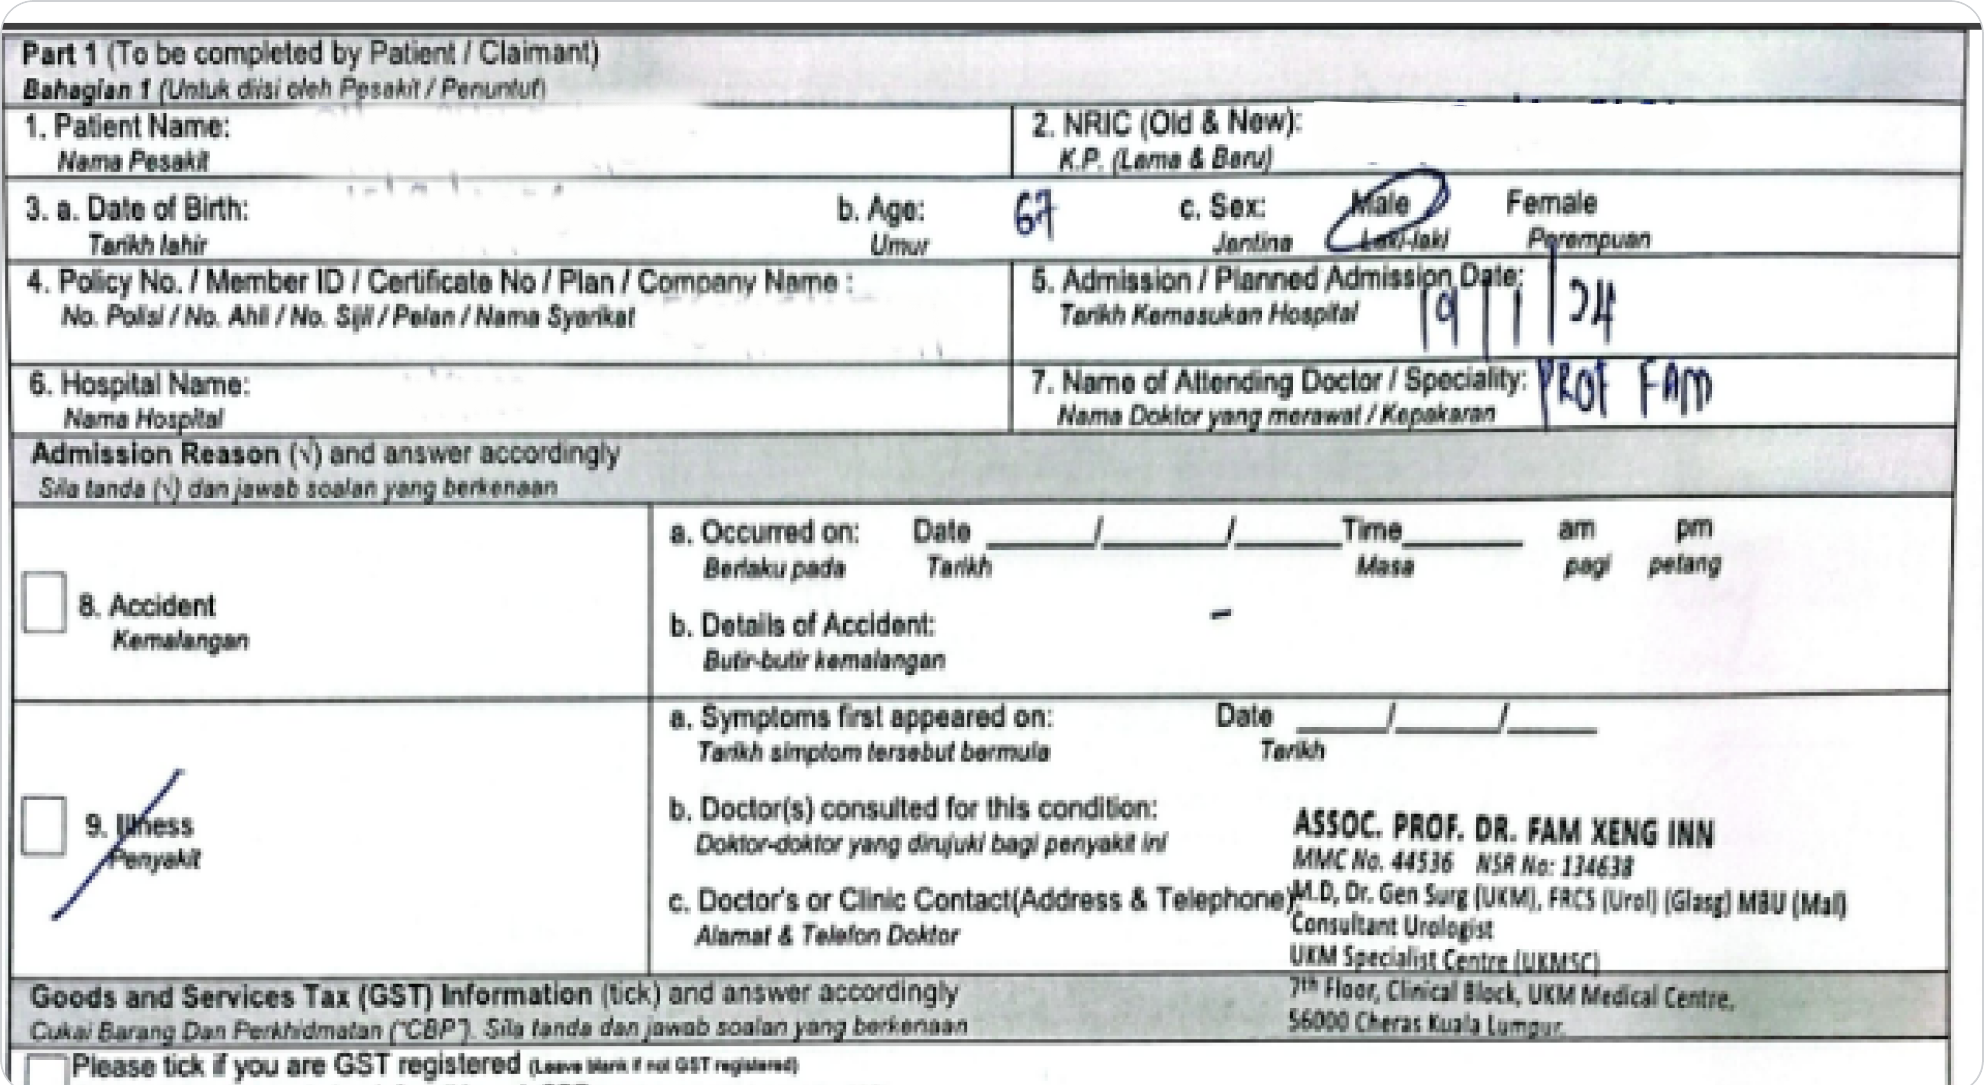 Part 1 (To be completed by Patient / Claimant)
Bahagian 1 (Untuk diisi oleh Pesakit / Penuntut)
1. Patient Name:
Nama Pesakit
2. NRIC (Old & New):
K.P. (Lama & Baru)
3. a. Date of Birth:
Tarikh lahir
b. Age: 67
Umur
c. Sex: Male Female
Jantina Laki-laki Perempuan
4. Policy No. / Member ID / Certificate No / Plan / Company Name :
No. Polisi / No. Ahli / No. Sijil / Pelan / Nama Syarikat
5. Admission / Planned Admission Date: 19/1/24
Tarikh Kemasukan Hospital
6. Hospital Name:
Nama Hospital
7. Name of Attending Doctor / Speciality: PROF FAM
Nama Doktor yang merawat / Kepakaran
Admission Reason (√) and answer accordingly
Sila tanda (√) dan jawab soalan yang berkenaan
8. Accident
Kemalangan
a. Occurred on: Date ______/______/______Time______ am pm
Berlaku pada Tarikh Masa pagi petang
b. Details of Accident: -
Butir-butir kemalangan
9. Illness
Penyakit
a. Symptoms first appeared on: Date _____/_____/_____
Tarikh simptom tersebut bermula Tarikh
b. Doctor(s) consulted for this condition:
Doktor-doktor yang dirujuki bagi penyakit ini
c. Doctor's or Clinic Contact(Address & Telephone):
Alamat & Telefon Doktor
ASSOC. PROF. DR. FAM XENG INN
MMC No. 44536 NSR No: 134638
M.D, Dr. Gen Surg (UKM), FRCS (Urol) (Glasg) MBU (Mal)
Consultant Urologist
UKM Specialist Centre (UKMSC)
7th Floor, Clinical Block, UKM Medical Centre,
56000 Cheras Kuala Lumpur.
Goods and Services Tax (GST) Information (tick) and answer accordingly
Cukai Barang Dan Perkhidmatan ("CBP"). Sila tanda dan jawab soalan yang berkenaan
Please tick if you are GST registered (Leave blank if not GST registered)